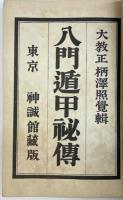 大教正柄澤照覺輯
八門遁甲祕傳
東京 神誠館藏版